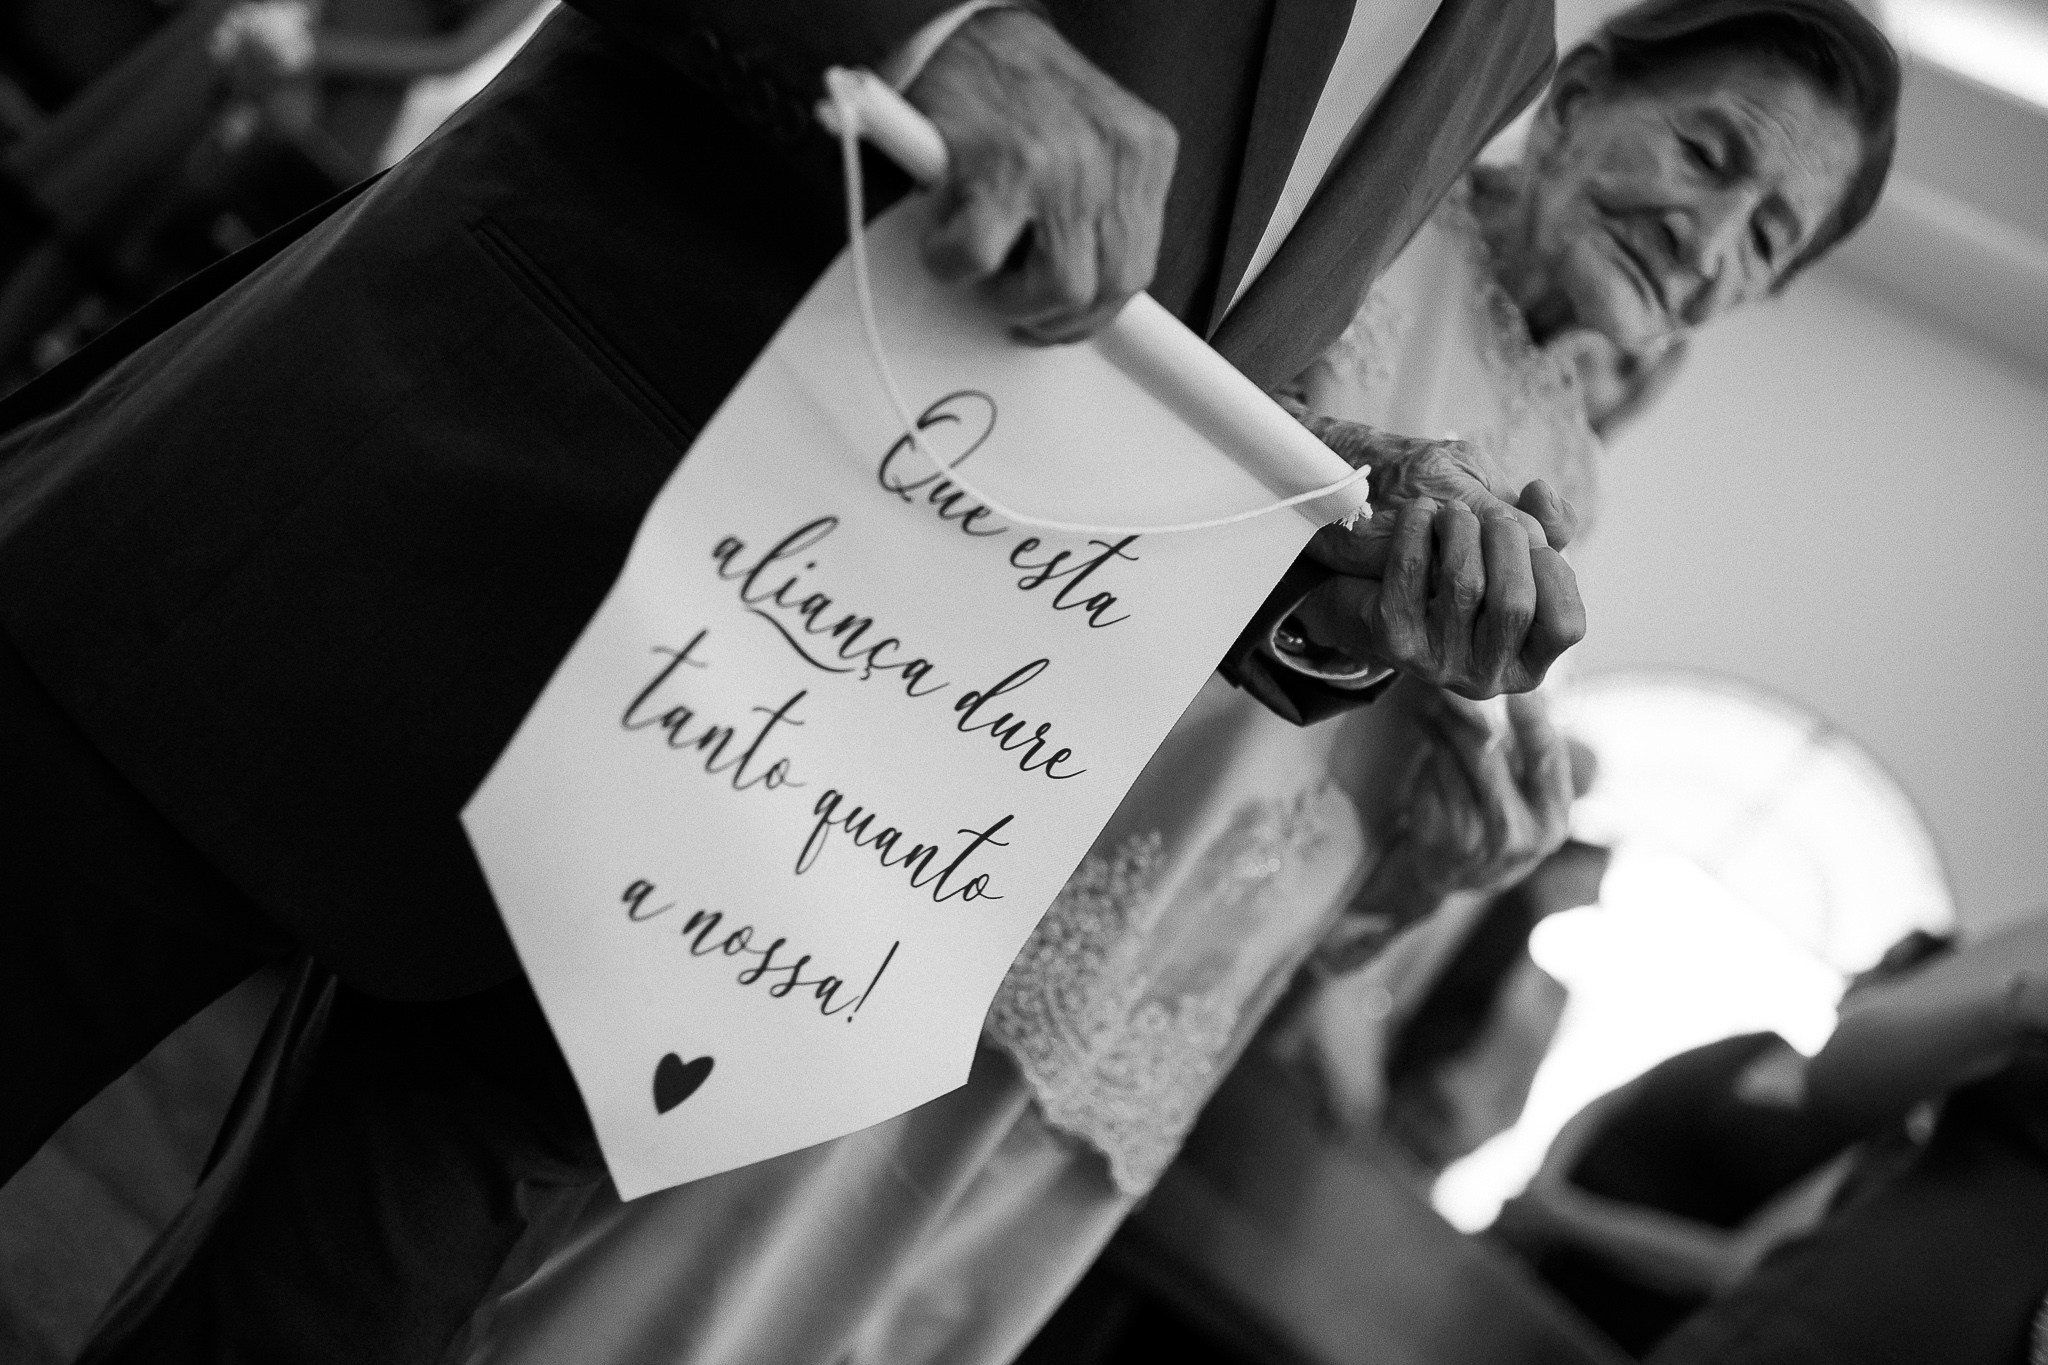 Que esta
aliança dure
tanto quanto
a nossa!